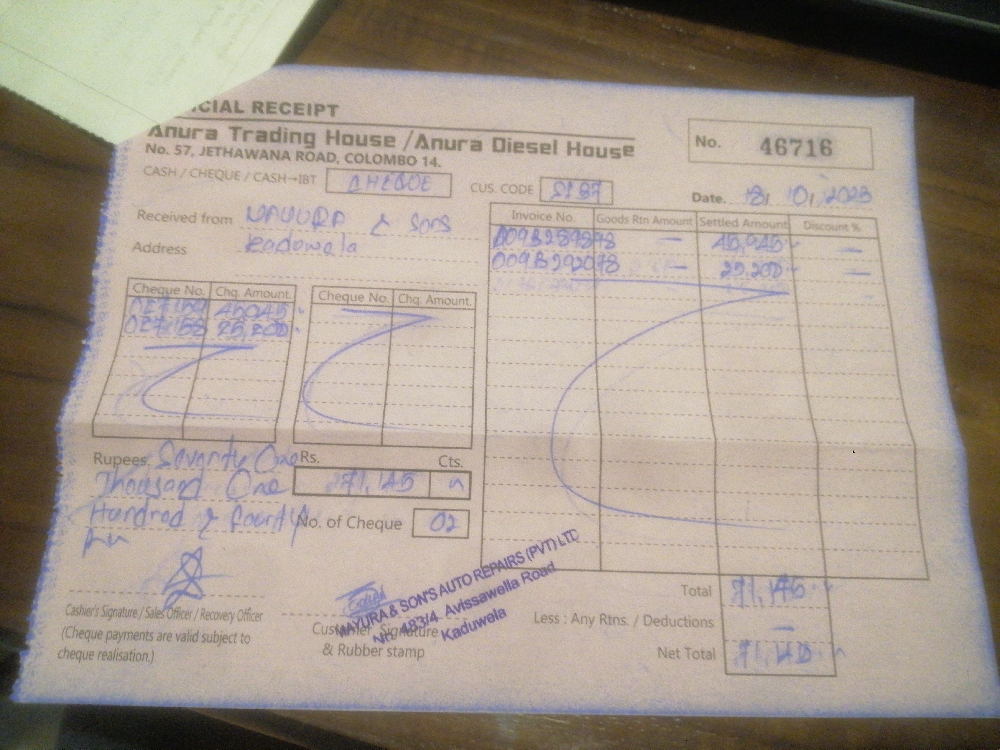 CIAL RECEIPT
Anura Trading House / Anura Diesel House
No. 57, JETHAWANA ROAD, COLOMBO 14.
No. 46716
CASH / CHEQUE / CASH→IBT CHEQUE
CUS. CODE
Date. 18, 10, 2023
Received from & Sons
Address kadowela
Invoice No. Goods Rtn Amount Settled Amount Discount %
009B289878 — 45,945 —
009B292078 — 25,200 —
Cheque No. Chq. Amount.
25,200
Cheque No. Chq. Amount.
Rupees Seventy One
Thousand One
Hundred & Fourty
Rs. Cts.
71,145
No. of Cheque 02
Cashier's Signature / Sales Officer / Recovery Officer
(Cheque payments are valid subject to
cheque realisation.)
Customer Signature
& Rubber stamp
MAYURA & SON'S AUTO REPAIRS (PVT) LTD
No. 483/4, Avissawella Road
Kaduwela
Total 71,145
Less : Any Rtns. / Deductions —
Net Total 71,145